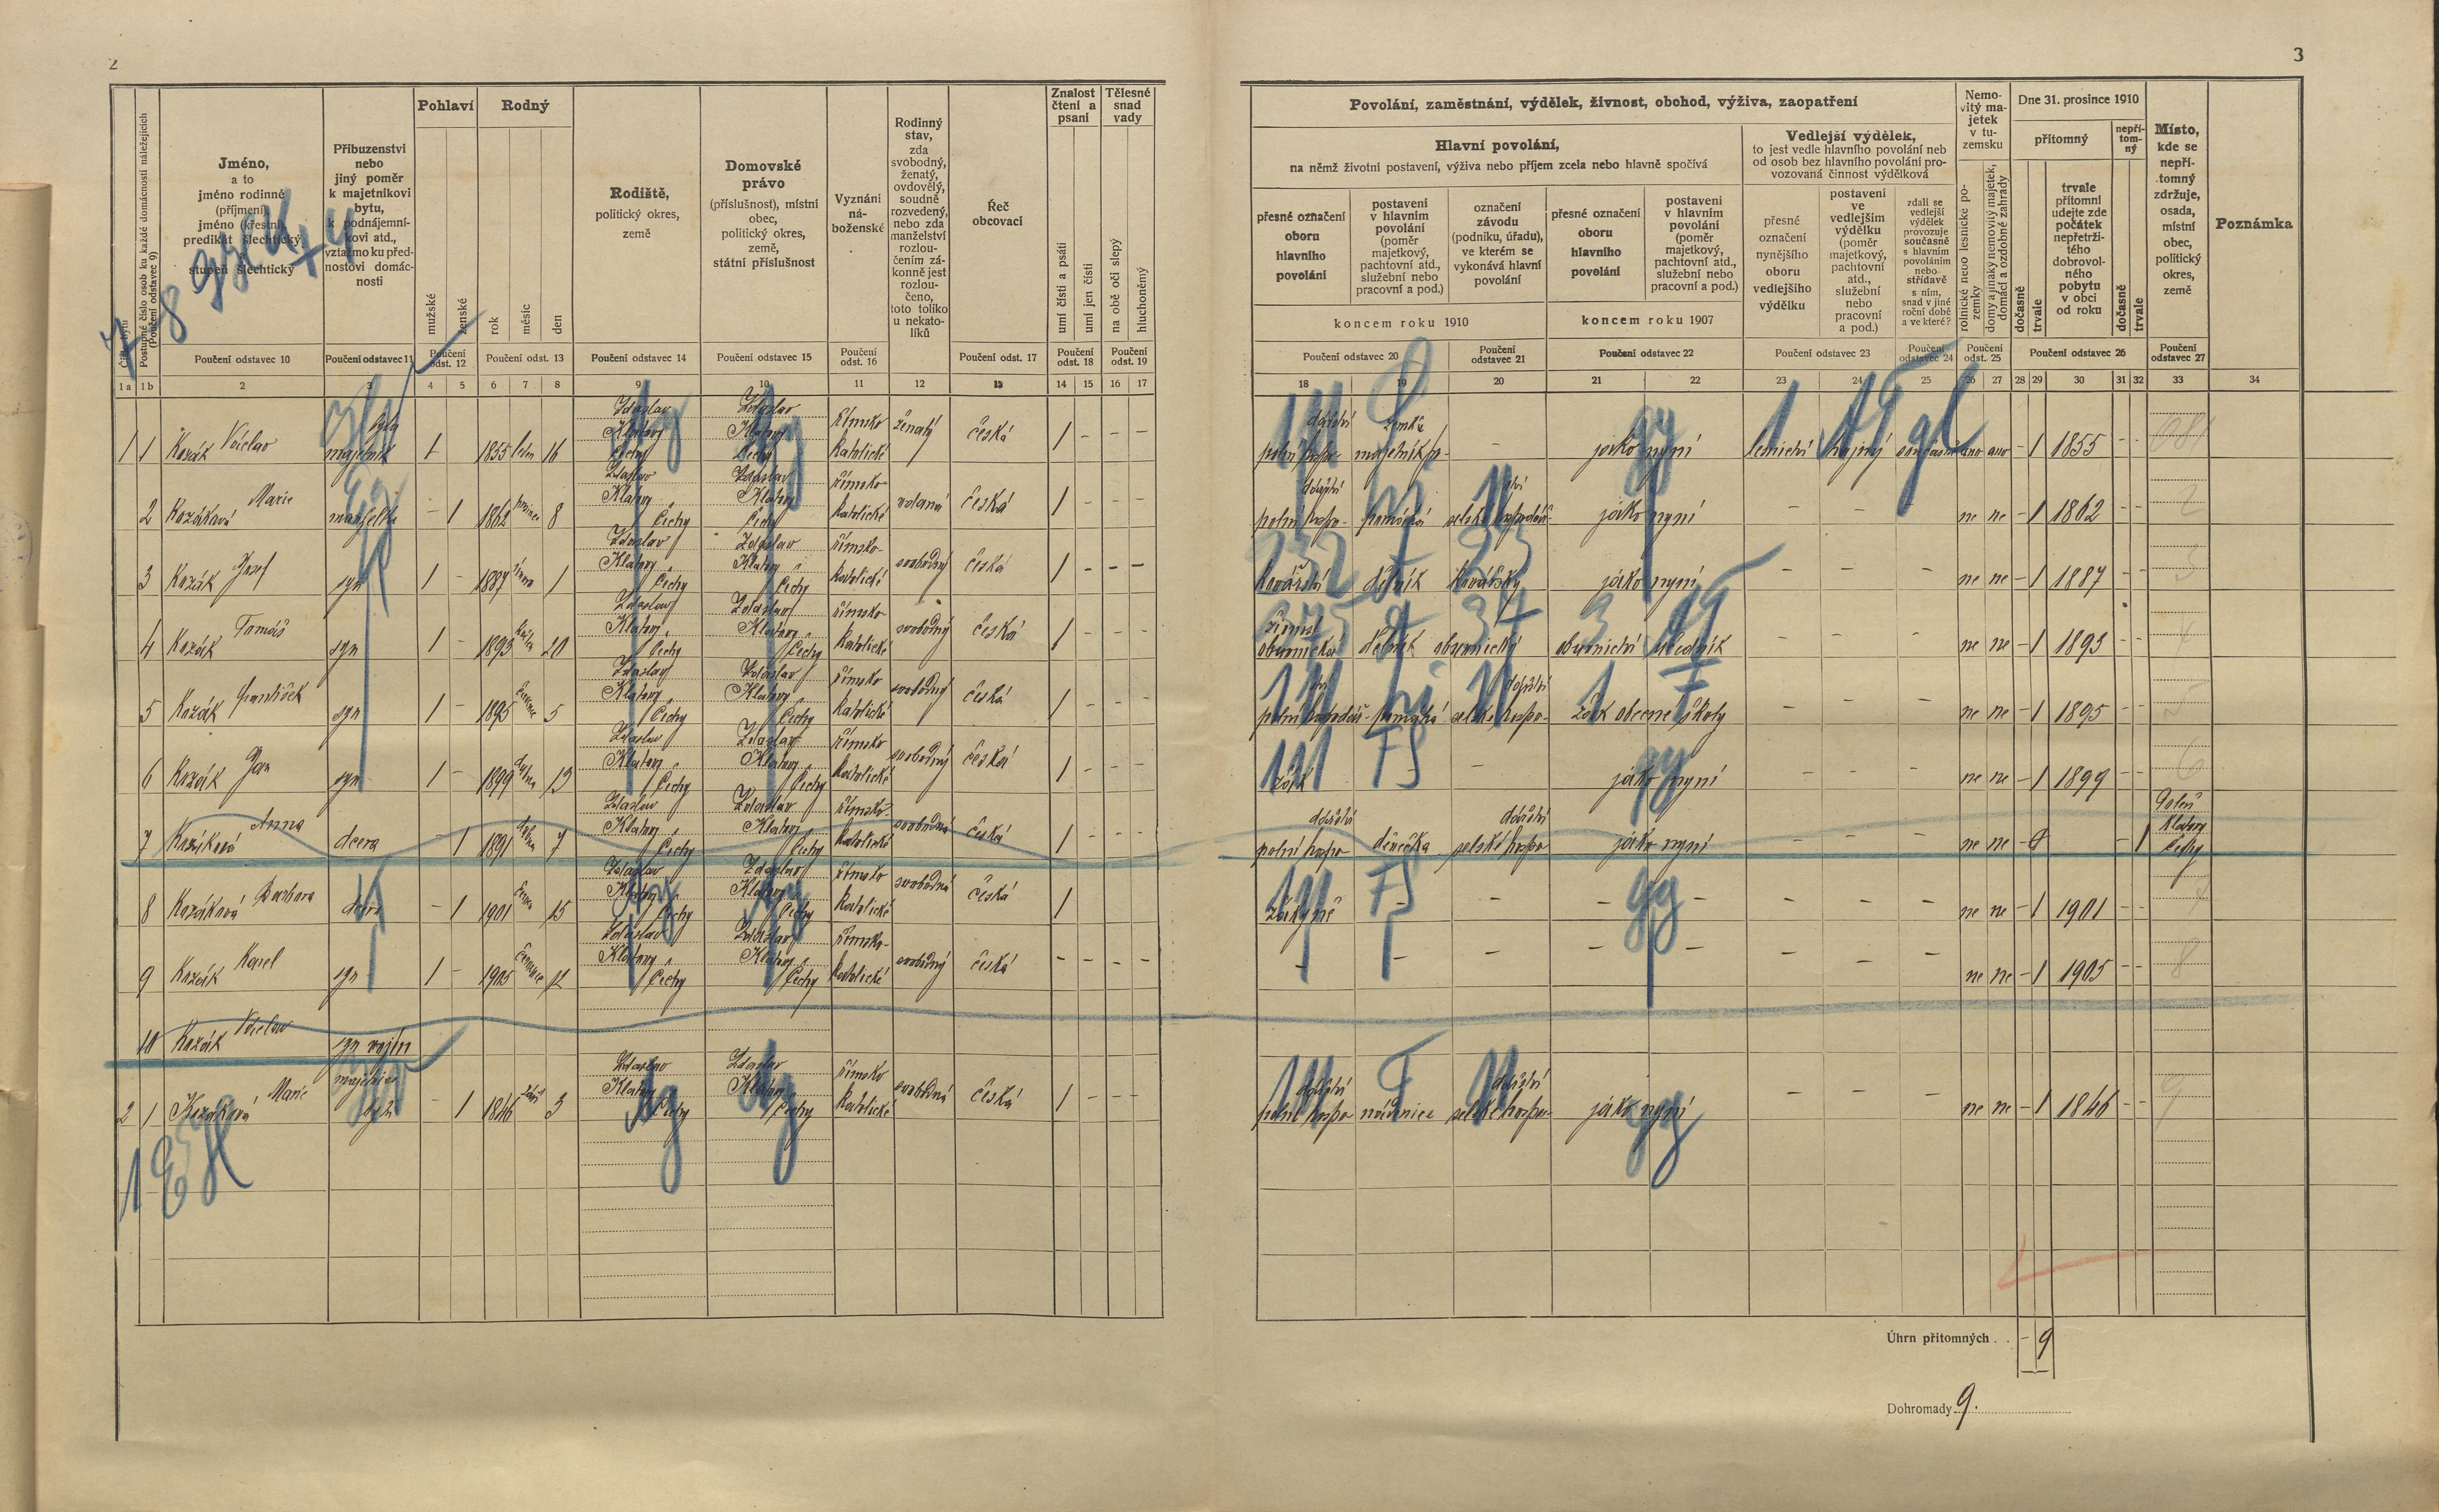 2
3
Číslo bytu
Postupné číslo osob ku každé domácnosti náležejících
(Poučení odstavec 9)
Jméno,
a to
jméno rodinné
(příjmení),
jméno (křestní),
predikát šlechtický,
stupeň šlechtický
Příbuzenství
nebo
jiný poměr
k majetníkovi
bytu,
k podnájemní-
kovi atd.,
vztažmo ku před-
nostovi domác-
nosti
Pohlaví
mužské
ženské
Rodný
rok
měsíc
den
Rodiště,
politický okres,
země
Domovské
právo
(příslušnost), místní
obec,
politický okres,
země,
státní příslušnost
Vyznání
ná-
boženské
Rodinný
stav,
zda
svobodný,
ženatý,
ovdovělý,
soudně
rozvedený,
nebo zda
manželství
rozlou-
čením zá-
konně jest
rozlou-
čeno,
toto toliko
u nekato-
líků
Řeč
obcovací
Znalost
čtení a
psaní
umí čísti a psáti
umí jen čísti
Tělesné
snad
vady
na obě oči slepý
hluchoněmý
Poučení odstavec 10
Poučení odstavec 11
Poučení odst. 12
Poučení odst. 13
Poučení odstavec 14
Poučení odstavec 15
Poučení odst. 16
Poučení odst. 17
Poučení odst. 18
Poučení odst. 19
1 a 1 b 2 3 4 5 6 7 8 9 10 11 12 13 14 15 16 17
Povolání, zaměstnání, výdělek, živnost, obchod, výživa, zaopatření
Hlavní povolání,
na němž životní postavení, výživa nebo příjem zcela nebo hlavně spočívá
přesné označení
oboru
hlavního
povolání
postavení
v hlavním
povolání
(poměr
majetkový,
pachtovní atd.,
služební nebo
pracovní a pod.)
označení
závodu
(podniku, úřadu),
ve kterém se
vykonává hlavní
povolání
koncem roku 1910
přesné označení
oboru
hlavního
povolání
postavení
v hlavním
povolání
(poměr
majetkový,
pachtovní atd.,
služební nebo
pracovní a pod.)
koncem roku 1907
Vedlejší výdělek,
to jest vedle hlavního povolání neb
od osob bez hlavního povolání pro-
vozovaná činnost výdělková
přesné
označení
nynějšího
oboru
vedlejšího
výdělku
postavení
ve
vedlejším
výdělku
(poměr
majetkový,
pachtovní
atd.,
služební
nebo
pracovní
a pod.)
zdali se
vedlejší
výdělek
provozuje
současně
s hlavním
povoláním
nebo
střídavě
s ním,
snad v jiné
roční době
a ve které?
Nemo-
vitý ma-
jetek
v tu-
zemsku
rolnické nebo lesnické po-
zemky
domy a jinaký nemovitý majetek,
domácí a ozdobné zahrady
Dne 31. prosince 1910
přítomný
dočasně
trvale
trvale
přítomní
udejte zde
počátek
nepřetrži-
tého
dobrovol-
ného
pobytu
v obci
od roku
nepří-
tom-
ný
dočasně
trvale
Místo,
kde se
nepří-
tomný
zdržuje,
osada,
místní
obec,
politický
okres,
země
Poznámka
Poučení odstavec 20
Poučení odstavec 21
Poučení odstavec 22
Poučení odstavec 23
Poučení odstavec 24
Poučení odst. 25
Poučení odstavec 26
Poučení odstavec 27
18 19 20 21 22 23 24 25 26 27 28 29 30 31 32 33 34
1 1 Kozák Václav majetník bytu 1 1855 leden 16 Zdaslav Klatovy Čechy Zdaslav Klatovy Čechy římsko katolické ženatý česká 1 - - -
2 Kozáková Marie manželka - 1 1862 prosinec 8 Zdaslav Klatovy Čechy Zdaslav Klatovy Čechy římsko katolické vdaná česká 1 - - -
3 Kozák Josef syn 1 - 1887 února 1 Zdaslav Klatovy Čechy Zdaslav Klatovy Čechy římsko katolické svobodný česká 1 - - -
4 Kozák Tomáš syn 1 - 1893 20 Zdaslav Klatovy Čechy Zdaslav Klatovy Čechy římsko katolické svobodný česká 1 - - -
5 Kozák František syn 1 - 1895 5 Zdaslav Klatovy Čechy Zdaslav Klatovy Čechy římsko katolické svobodný česká 1 - -
6 Kozák Jan syn 1 - 1899 13 Zdaslav Klatovy Čechy Zdaslav Klatovy Čechy římsko katolické svobodný česká 1 - - -
7 Kozáková Anna dcera - 1 1891 7 Zdaslav Klatovy Čechy Zdaslav Klatovy Čechy římsko katolické svobodná česká 1 - - -
8 Kozáková Barbora dcera - 1 1901 15 Zdaslav Klatovy Čechy Zdaslav Klatovy Čechy římsko katolické svobodná česká 1
9 Kozák Karel syn 1 - 1905 12 Zdaslav Klatovy Čechy Zdaslav Klatovy Čechy římsko katolické svobodný česká - - - -
10 Kozák Václav syn vojín
2 1 Kozáková Marie bytu - 1 1846 září 3 Zdaslav Klatovy Čechy Zdaslav Klatovy Čechy římsko katolické svobodná česká 1 - - -
polní hospodářství - jako nyní lesnictví hajný současně ano ano - 1 1855 - -
polní hospodářství pomocná selské hospodářství jako nyní - - - ne ne - 1 1862 - -
kovářství dělník kovářský jako nyní - - - ne ne - 1 1887 - -
obuvnická dělník obuvnický obuvnictví učedník - - - ne ne - 1 1893 - -
polní hospodářství pomocná selské hospodářství žák obecné školy - - - ne ne - 1 1895 - -
žák - - jako nyní - - - ne ne - 1 1899 - -
polní hospodářství děvečka selské hospodářství jako nyní - - - ne ne - - 1 Klatovy Čechy
žákyně - - - - - - - ne ne - 1 1901 - -
- - - - - - - - ne ne - 1 1905 - -
polní hospodářství nádenice selské hospodářství jako nyní - - - ne ne - 1 1846 - -
Úhrn přítomných . . - 9
Dohromady 9.